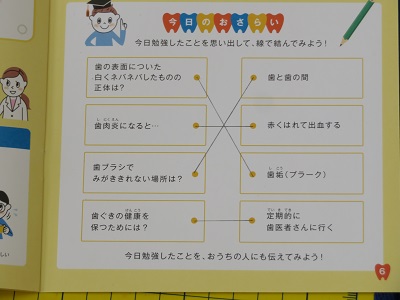 今日のおさらい
今日勉強したことを思い出して、線で結んでみよう!
歯の表面についた
白くネバネバしたものの
正体は?
歯と歯の間
しにくえん
歯肉炎になると…
赤くはれて出血する
歯ブラシで
みがききれない場所は?
しこう
歯垢(プラーク)
けんこう
歯ぐきの健康を
保つためには?
ていきてき
定期的に
歯医者さんに行く
今日勉強したことを、おうちの人にも伝えてみよう!
6